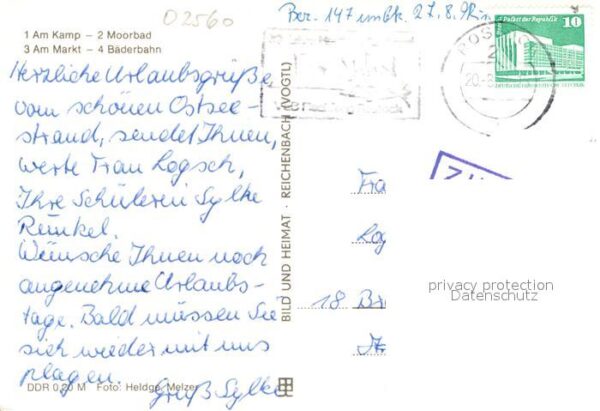 02560
Ber. 147 unbk. 27.8.
1 Am Kamp – 2 Moorbad
3 Am Markt – 4 Bäderbahn
Herzliche Urlaubsgrüße
vom schönen Ostsee-
strand, sendet Ihnen,
werte Frau Logsch,
Ihre Schülerin Sylke
Reinkel.
Wünsche Ihnen noch
angenehme Urlaubs-
tage. Bald müssen Sie
sich wieder mit uns
plagen.
Gruß Sylke
DDR 0,20 M Foto: Heldge, Melzer
BILD UND HEIMAT · REICHENBACH (VOGTL)
Palast der Republik
10
ROSTOCK
20.
Fra
Log
18 Br
privacy protection
Datenschutz